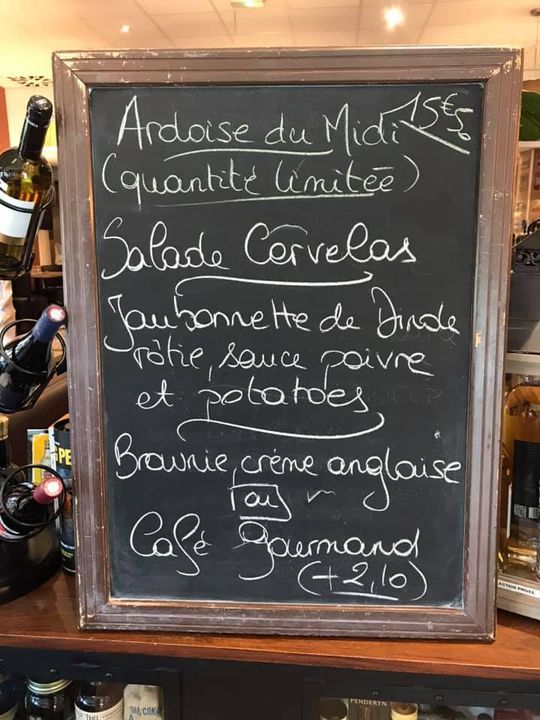 Ardoise du Midi 15€50
(quantité limitée)
Salade Cervelas
Jambonnette de Dinde
rôtie, sauce poivre
et potatoes
Brownie, crème anglaise
ou
Café Gourmand
(+2,10)
PENDERYN